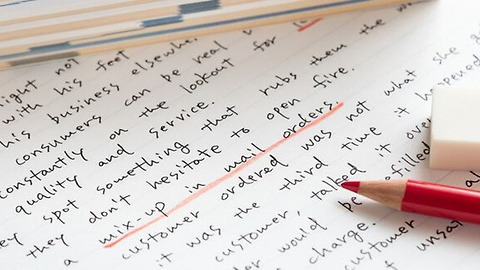 ight not
with his feet
his business elsewhe
consumers can be real
constantly on the lookout for
quality and service.
ey spot something that rubs them the w
they don't hesitate to open fire.
a mix-up in mail orders.
customer ordered was not what she g
it was the third time it happened
customer, talked it over
der would be filled
charge.
customer
unsat